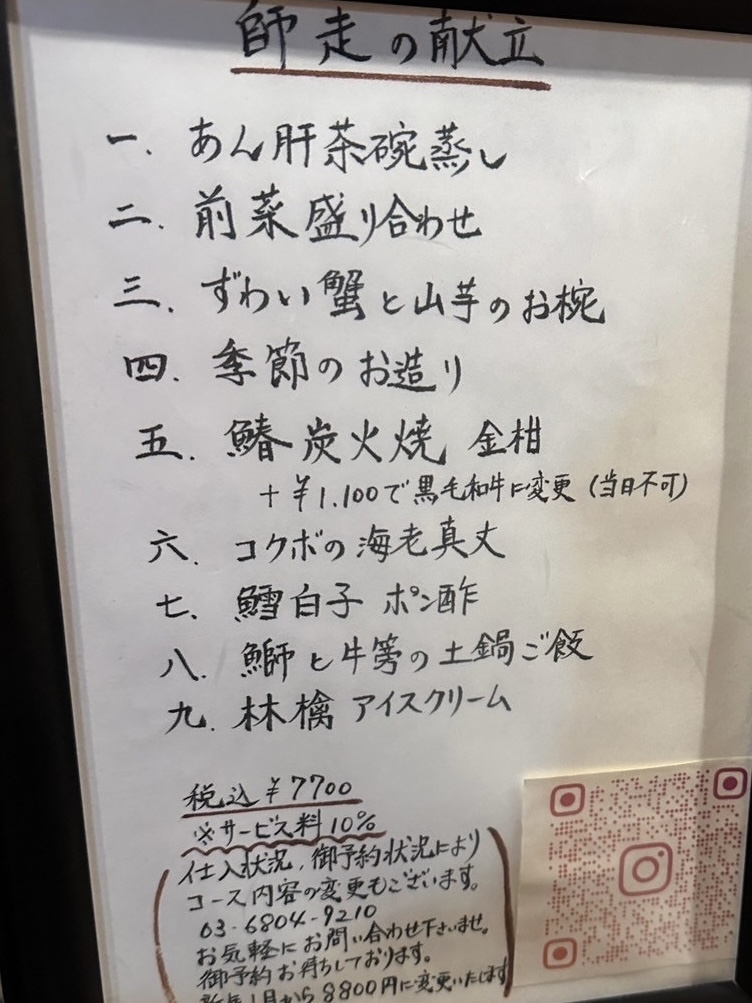 師走の献立
一. あん肝茶碗蒸し
二. 前菜盛り合わせ
三. ずわい蟹と山芋のお椀
四. 季節のお造り
五. 鰆炭火焼 金柑
+¥1.100で黒毛和牛に変更(当日不可)
六. コクボの海老真丈
七. 鱈白子 ポン酢
八. 鰤と牛蒡の土鍋ご飯
九. 林檎 アイスクリーム
税込¥7700
※サービス料10%
仕入状況、御予約状況により
コース内容の変更もございます。
03-6804-9210
お気軽にお問い合わせ下さいませ。
御予約お待ちしております。
新年1月から8800円に変更いたします